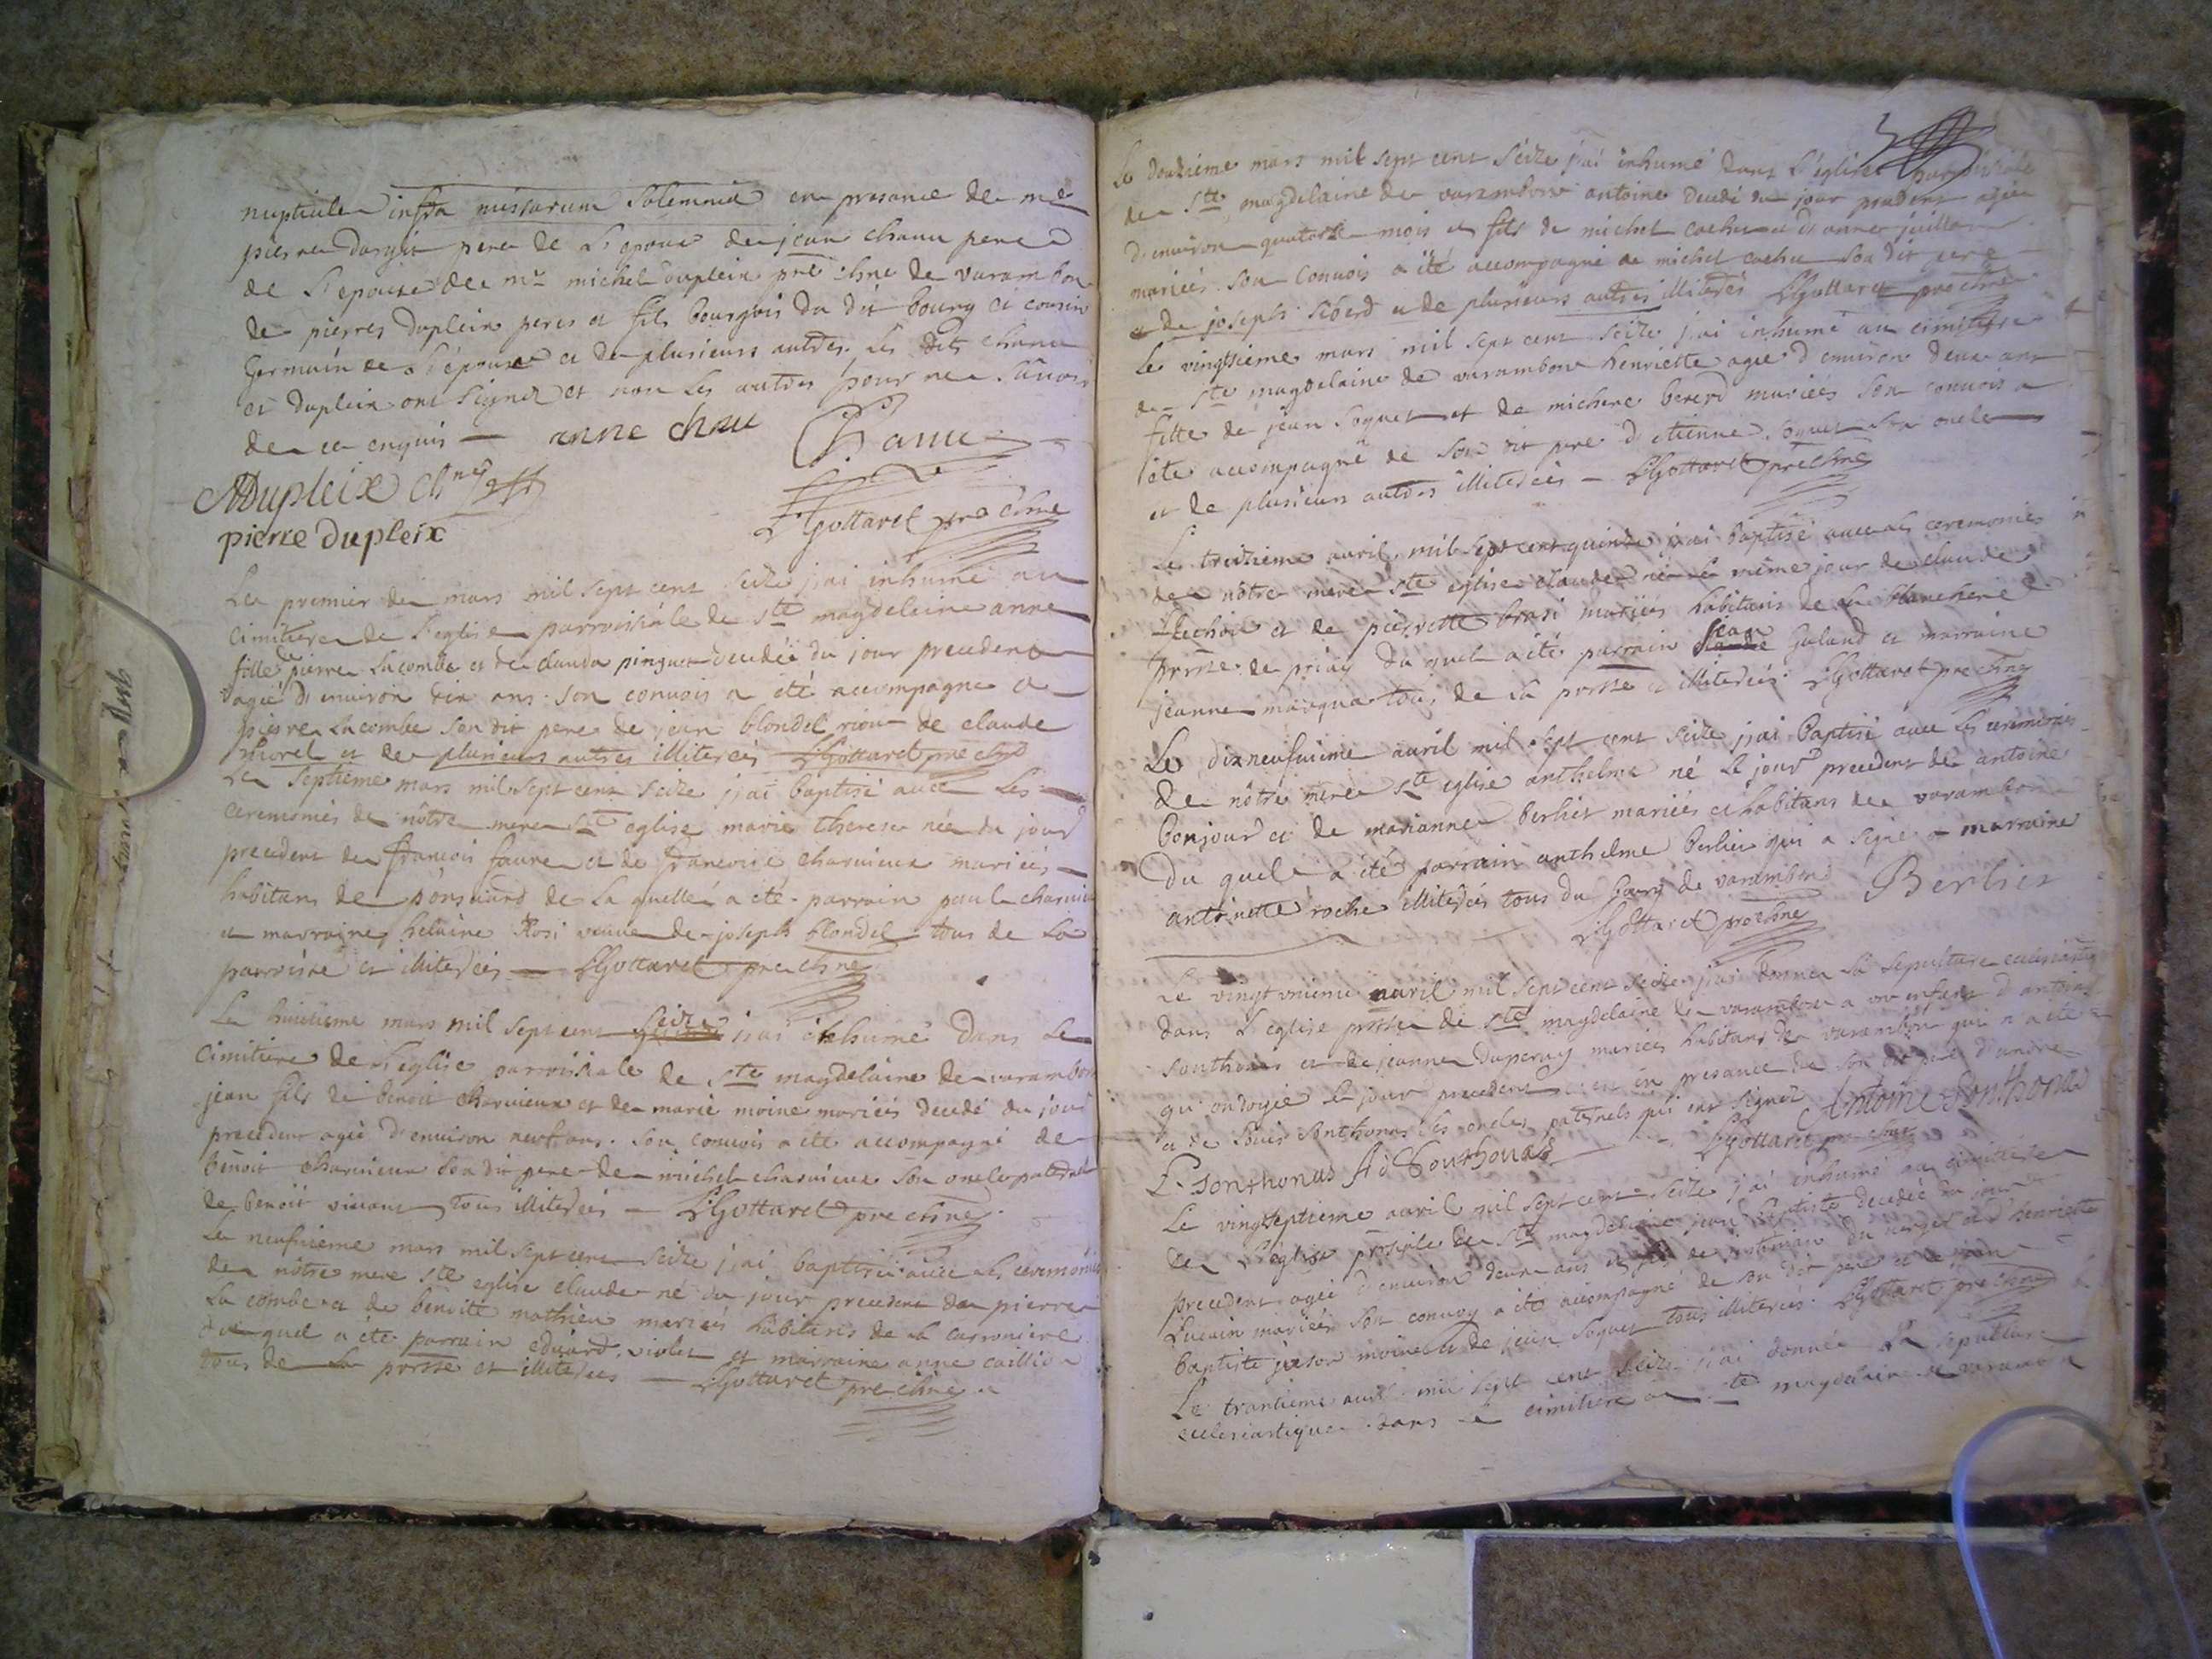 nuptiale infra missarum Solemnia en presance de me
pierre dargit pere de L'epoux de jean chanu pere
de L'epouse de mr michel duplein pre chne de varambon
de pierres duplein peres et fils bourgois du dit bourg et cousin
Germain de L'epouse et de plusieurs autres. Les dits chanu
et duplein ont Signez et non Les autres pour ne Sauoir
de ce enquis — anne chau Chanu
MDupleix chne
pierre dupleix
L Gottaret pre chne
Le premier de mars mil sept cent seize j'ai inhumé au
Cimitiere de L'eglise parroissiale de Ste magdelaine anne
fille de pierre Lacombe et de clauda pinguet decedée du jour precedent
agée d'environ dix ans son convois a été accompagné de
pierre Lacombe son dit pere de jean blondel rion de claude
morel et de plusieurs autres illiterées LGottaret pre chne
Le septième mars mil sept cent seize j'ai baptisé auec Les
ceremonies de nôtre mere Ste eglise marie therese née du jour
precedent de francois faure et de francoise charuieux mariés
habitans de ponsuard de La quelle a été parrain paul charuieu
et marraine helaine Rosi veuue de joseph blondel tous de La
parroisse et illiterées — LGottaret pre chne
Le huitieme mars mil sept cent seize j'ai inhumé dans Le
Cimitiere de L'eglise parroissiale de Ste magdelaine de varambon
jean fils de benoit charuieux et de marie moine mariés decedé du jour
precedent agé d'environ neuf ans. Son convois a été accompagné de
benoit charuieux son dit pere de michel charuieux son oncle paternel
de benoit viuant tous illiterées — LGottaret pre chne
Le neufuieme mars mil sept cent seize j'ai baptisé auec Les ceremonies
de nôtre mere Ste eglise claude né du jour precedent de pierre
La combe et de benoite mathieu mariés habitans de La carroniere
du quel a été parrain eduard violet et marraine anne caillie
tous de La prsse et illiterées — LGottaret pre chne
Le douzième mars mil sept cent seize j'ai inhumé dans L'eglise parroissiale
de Ste magdelaine de varambon antoine decedé du jour precedent agé
d'environ quatorze mois et fils de michel cochu et d'anne juillar
mariés. son convois a été accompagné de michel cochu son dit pere
et de joseph Siberd et de plusieurs autres illiterés LGottaret pre chne
Le vingtsieme mars mil sept cent seize j'ai inhumé au cimitiere
de Ste magdelaine de varambon henriette agée d'environ deux ans
fille de jean Soquet et de michere bererd mariées son conuois a
été accompagné de son dit pere d'etienne Soquet son oncle
et de plusieurs autres illiterées — LGottaret pre chne
Le treizieme auril mil sept cent quinze j'ai baptisé auec Les ceremonies
de nôtre mere Ste eglise claude né Le même jour de claude
et de pierrette brosi mariées habitans de La blanchere
prsse de priay du quel a été parrain jean Goland et marraine
jeanne marqua tous de La prsse et illiterées LGottaret pre chne
Le dixneufuieme auril mil sept cent seize j'ai baptisé auec Les ceremonies
de nôtre mere Ste eglise anthelme né Le jour precedent de antoine
bonjour et de marianne berlier mariées et habitans de varambon
Du quel a été parrain anthelme berlier qui a signé et marraine
antoinette roche illiterées tous du bourg de varambon Berlier
LGottaret pre chne
Le vingt unieme auril mil sept cent seize j'ai donné La sepulture eclesiastiq
dans L'eglise prssle de Ste magdelaine de varambon a un enfant d'antoine
Sonthonas et de jeanne duperay mariées habitans de varambon qui n'a été
qu'ondoyé Le jour precedent et en presance de son dit pere d'andre
et de Louis Sonthonas ses oncles paternels qui ont signez Antoine Sonthonas
L. Sonthonas Ad Sonthonas LGottaret pre chne
Le vingtseptieme auril mil sept cent seize j'ai inhumé au cimitiere
de L'eglise prssiale de Ste magdelaine jean baptiste decedée du jour
precedent agé d'environ deux ans et fils de du verget et d'henriette
mariées son convoy a été acompagné de son dit pere et de jean
baptiste moine et de jean Soquet tous illiterées LGottaret pre chne
Le trantieme auril mil sept cent seize j'ai donné La sepulture
eclesiastique dans Le cimitiere de Ste magdelaine de varambon